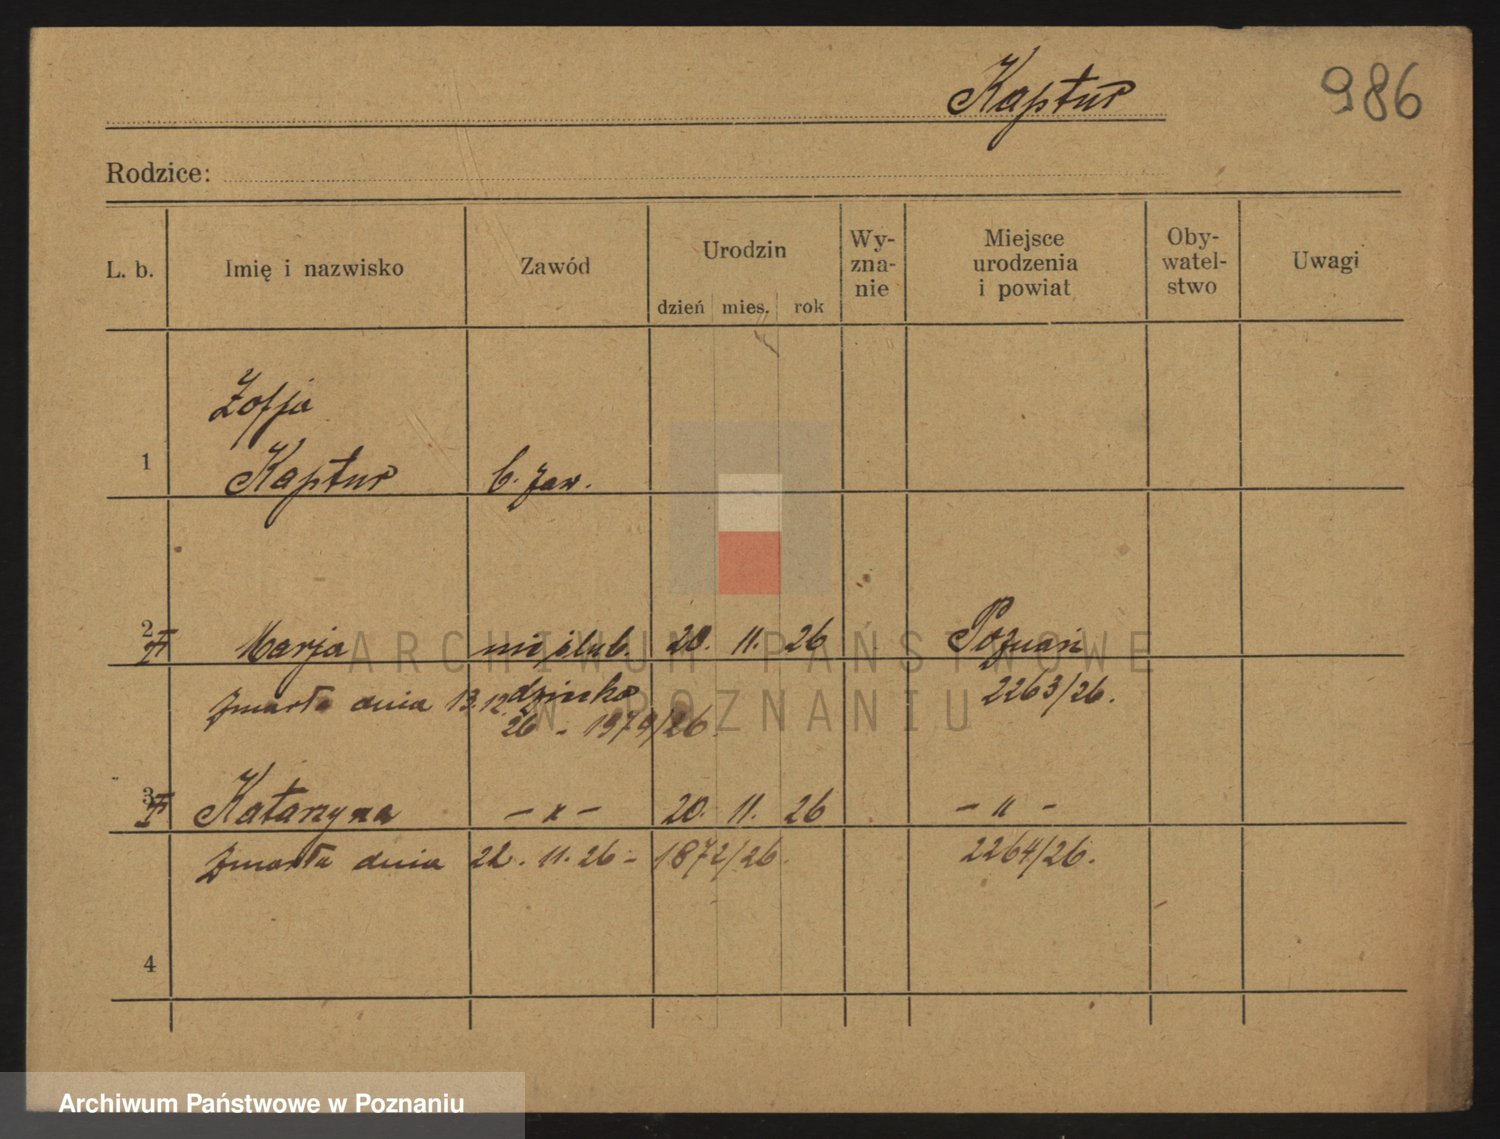 Kaptur
986
Rodzice:
L. b. Imię i nazwisko Zawód Urodzin dzień mies. rok Wy-zna-nie Miejsce urodzenia i powiat Oby-watel-stwo Uwagi
Zofja
1 Kaptur b. zaw.
2 Marja nieślub. 20. 11. 26 Poznań
zmarła dnia 13.12. dziecko 2263/26.
26 - 1979/26.
3 Katarzyna - " - 20. 11. 26 - " -
zmarła dnia 22. 11. 26 - 1872/26. 2264/26.
4
ARCHIWUM PAŃSTWOWE
W POZNANIU
Archiwum Państwowe w Poznaniu